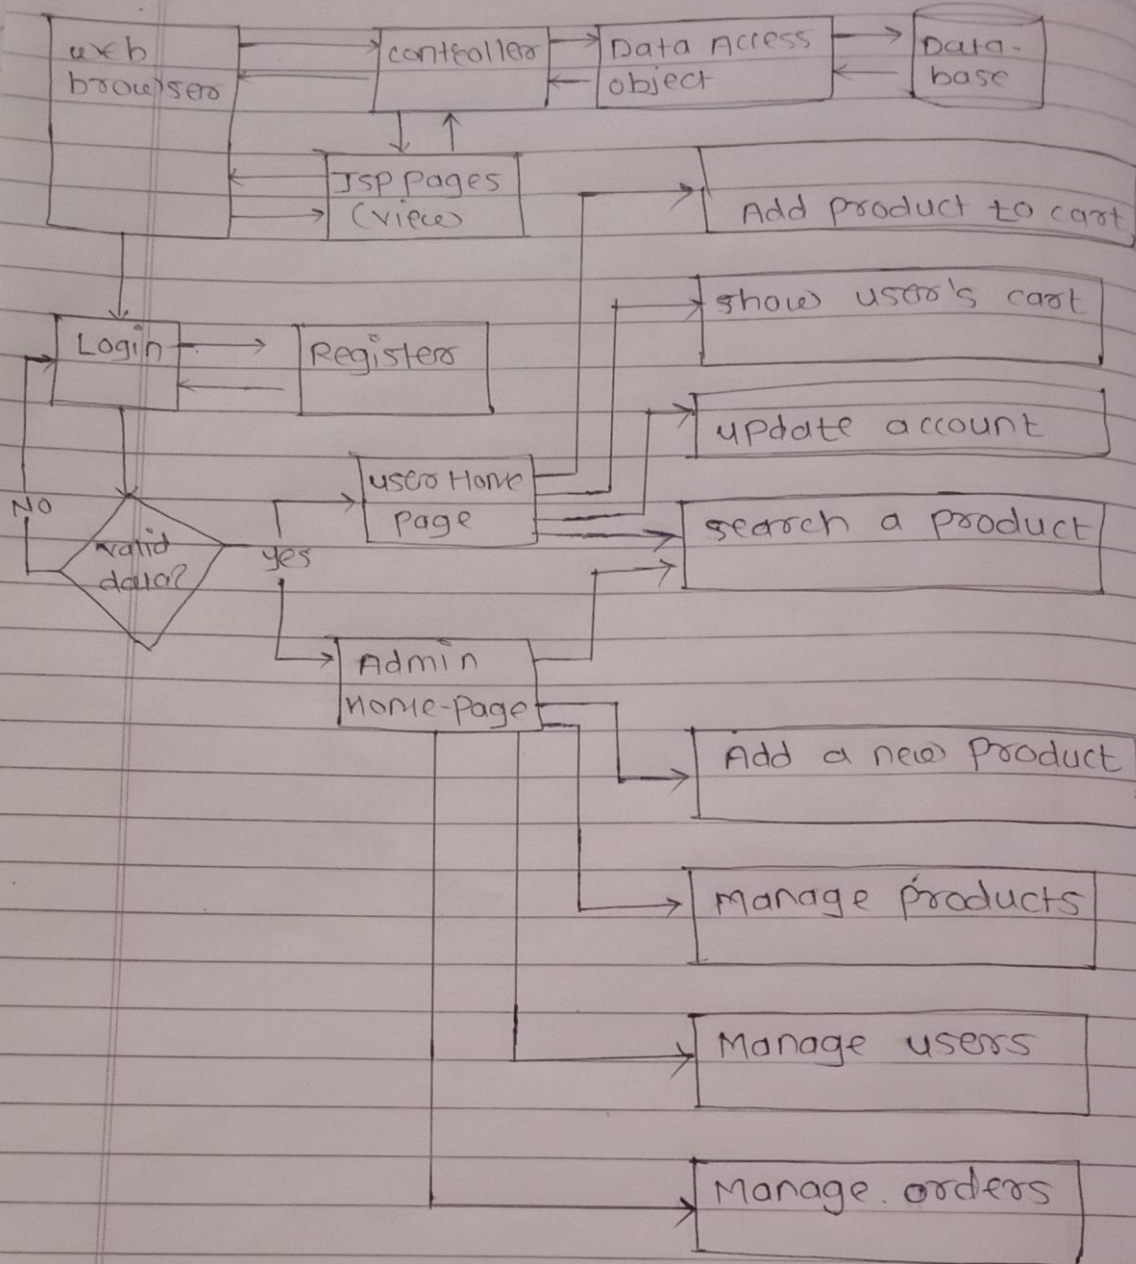 web
browser
controller
Data Access
object
Data-
base
JSP pages
(view)
Add product to cart
show user's cart
Login
Register
update account
user Home
page
search a product
No
valid
data?
yes
Admin
Home-page
Add a new product
Manage products
Manage users
Manage. orders